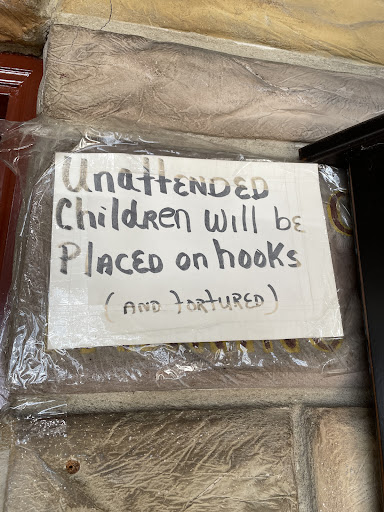 UnattENDED
ChilDREN will be
PlACED on hooks
(AND tORtURED)